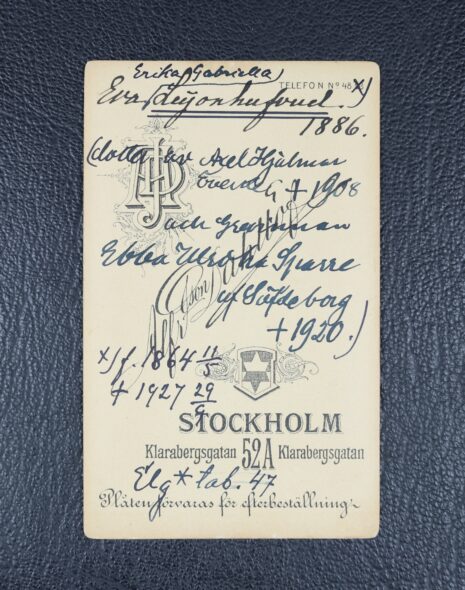 Erika Gabriella
TELEFON No 48
Eva Leijonhufvud. x)
1886.
(dotter av Axel Hjalmar
överste G † 1908
och Grevinnan
Ebba Ulrika Sparre
af Söfdeborg
† 1920.)
x) f. 1864 11/5
† 1927 29/9
STOCKHOLM
Klarabergsgatan 52A Klarabergsgatan
Elg* tab. 47
Plåten förvaras för efterbeställning